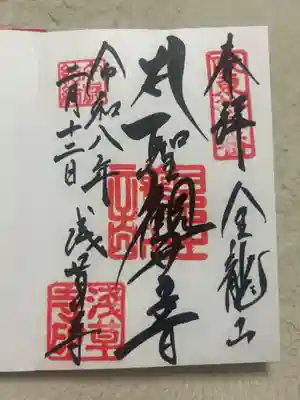 奉拝 金龍山
聖観世音
令和八年 浅草寺
二月十二日